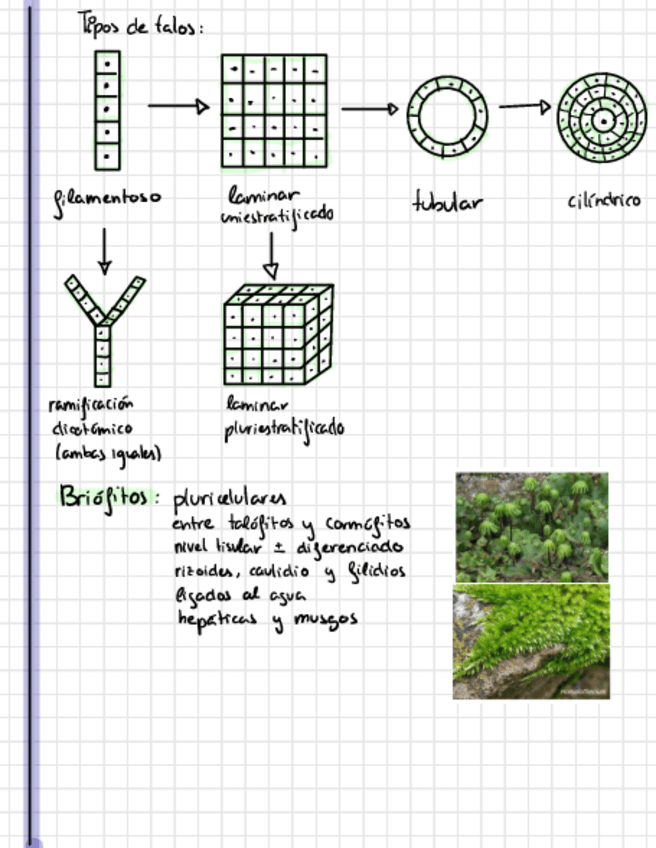 Tipos de talos:
filamentoso
laminar
uniestratificado
tubular
cilíndrico
ramificación
dicotómico
(ambas iguales)
laminar
pluriestratificado
Briófitos: pluricelulares
entre talófitos y cormófitos
nivel tisular ± diferenciado
rizoides, caulidio y filidios
ligados al agua
hepáticas y musgos